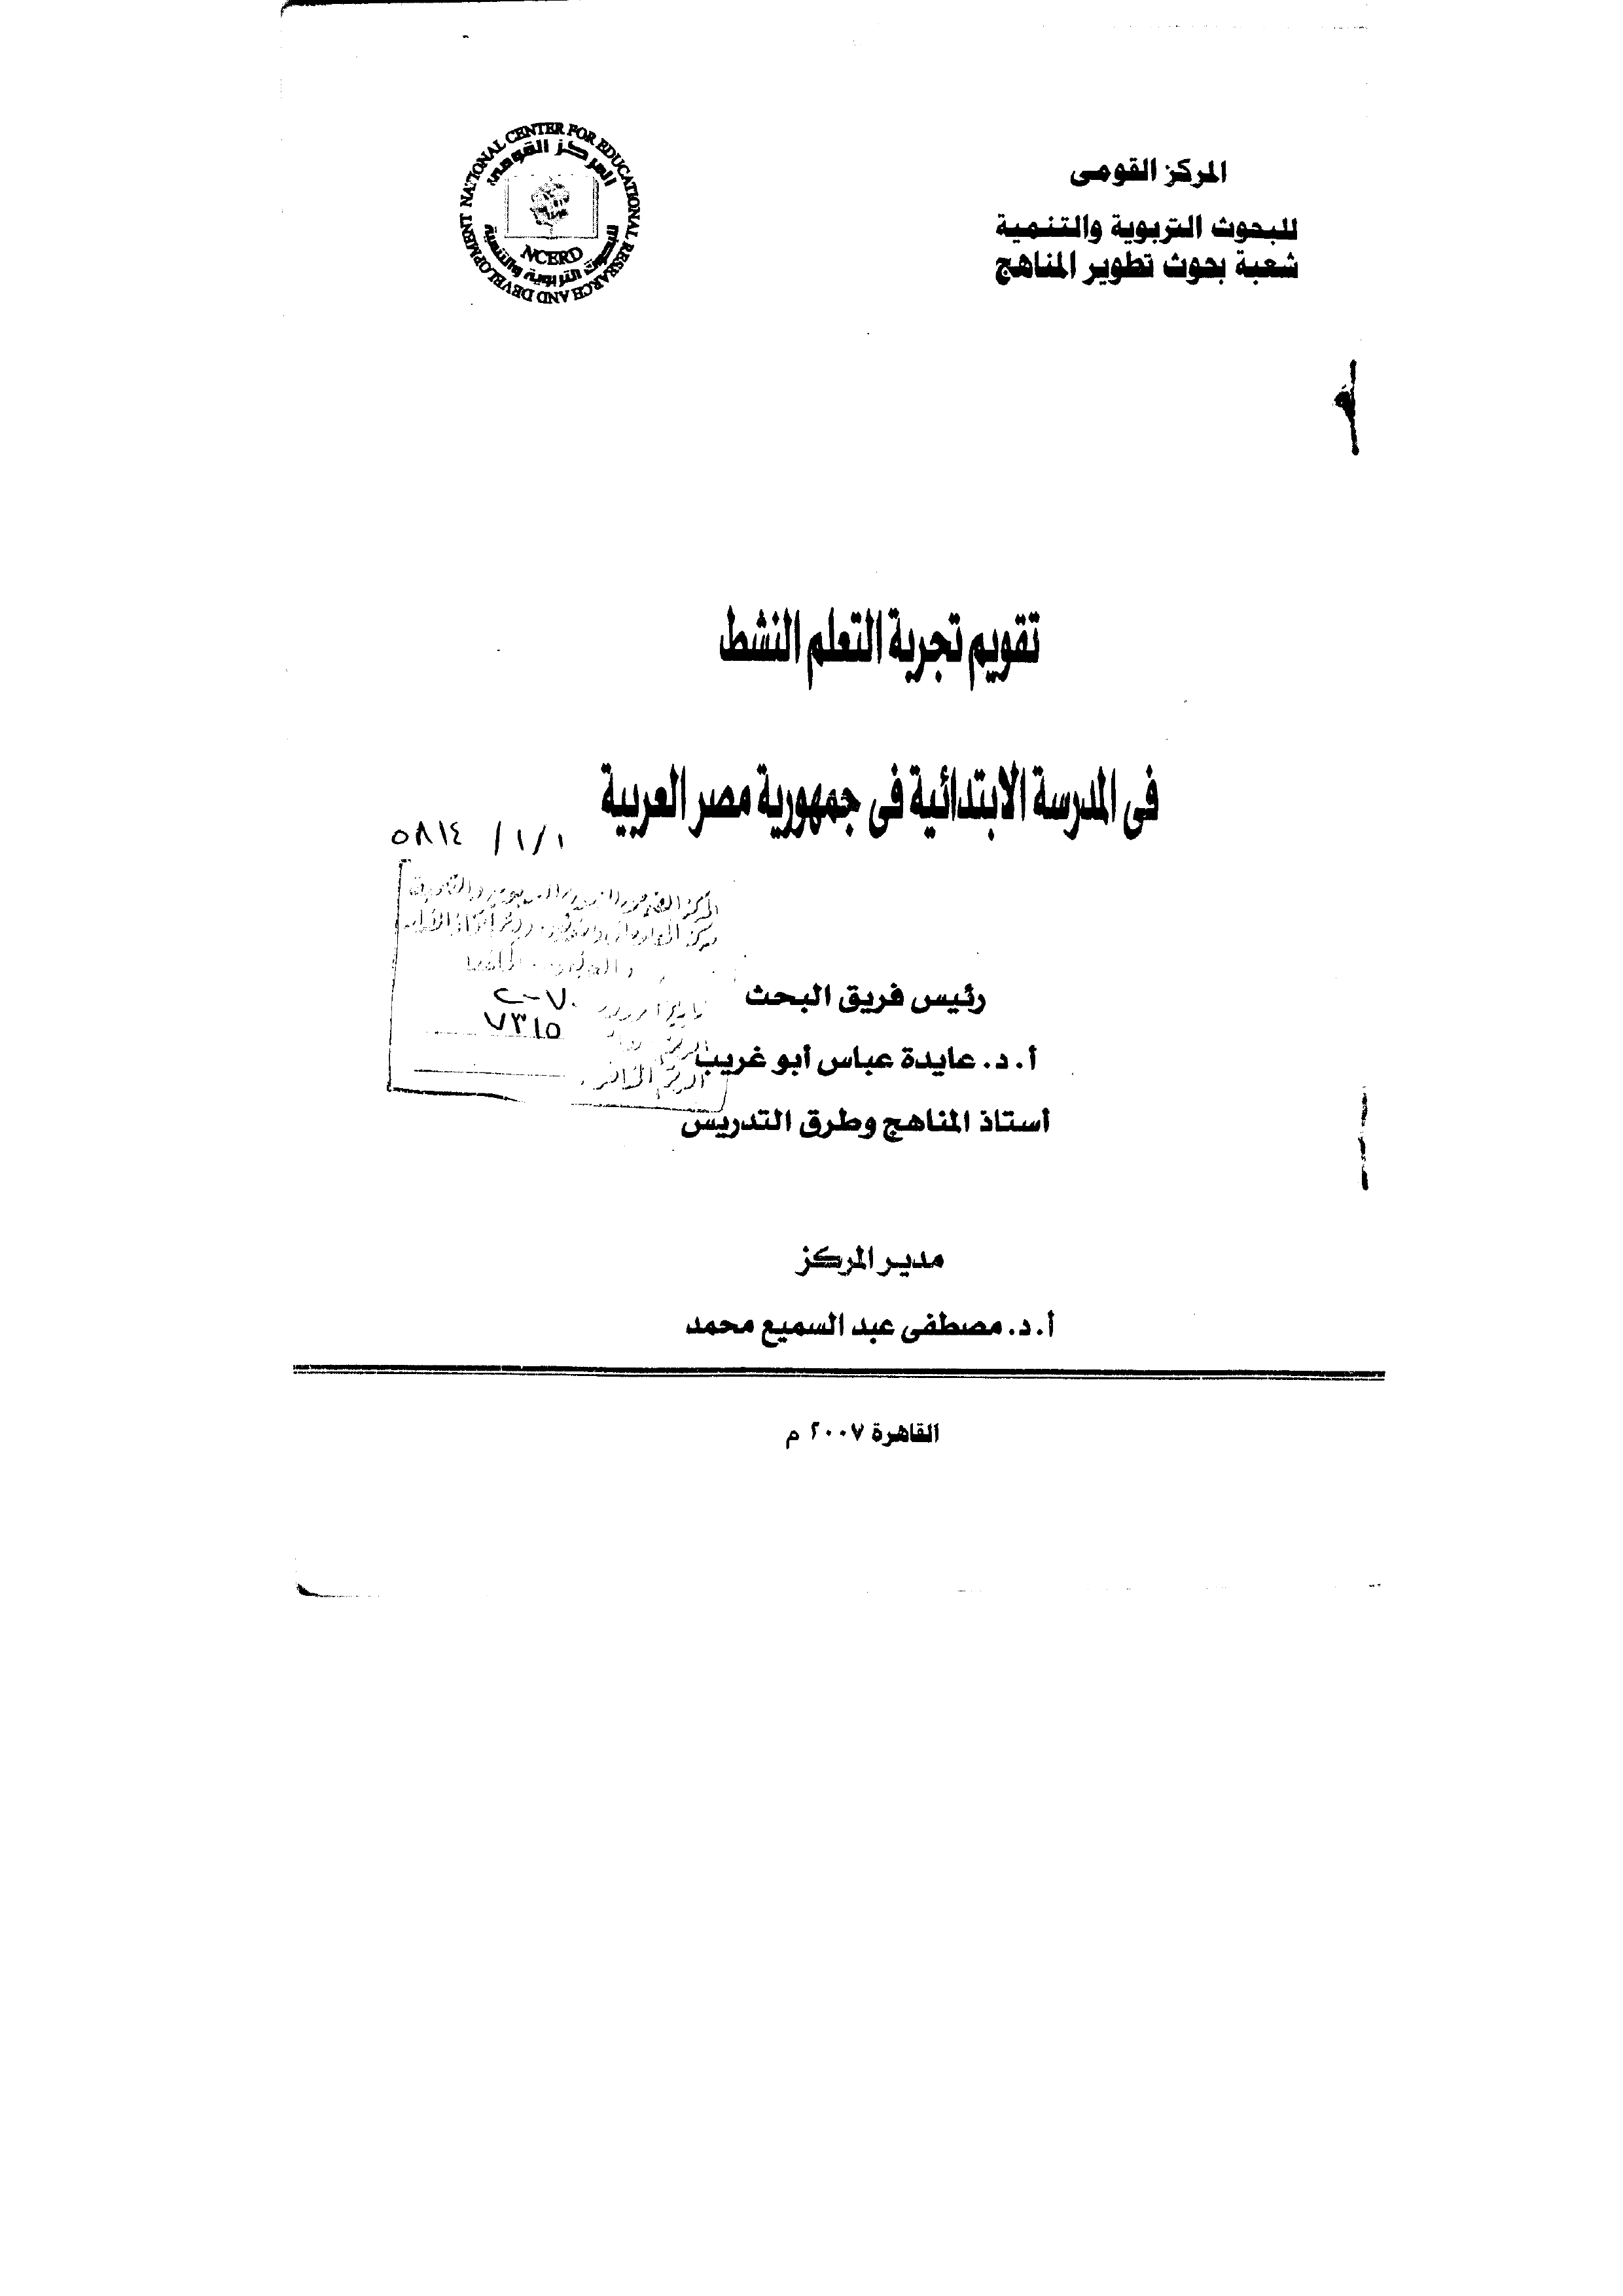 المركز القومى
للبحوث التربوية والتنمية
شعبة بحوث تطوير المناهج
NATIONAL CENTER FOR EDUCATIONAL RESEARCH AND DEVELOPMENT
المركز القومي
للبحوث التربوية والتنمية
NCERD
تقويم تجربة التعلم النشط
فى المدرسة الابتدائية فى جمهورية مصر العربية
٥٨١٤ / ١/١
٢٠٠٧
٧٣١٥
رئيس فريق البحث
أ.د. عايدة عباس أبو غريب
أستاذ المناهج وطرق التدريس
مدير المركز
أ.د. مصطفى عبد السميع محمد
القاهرة ٢٠٠٧ م